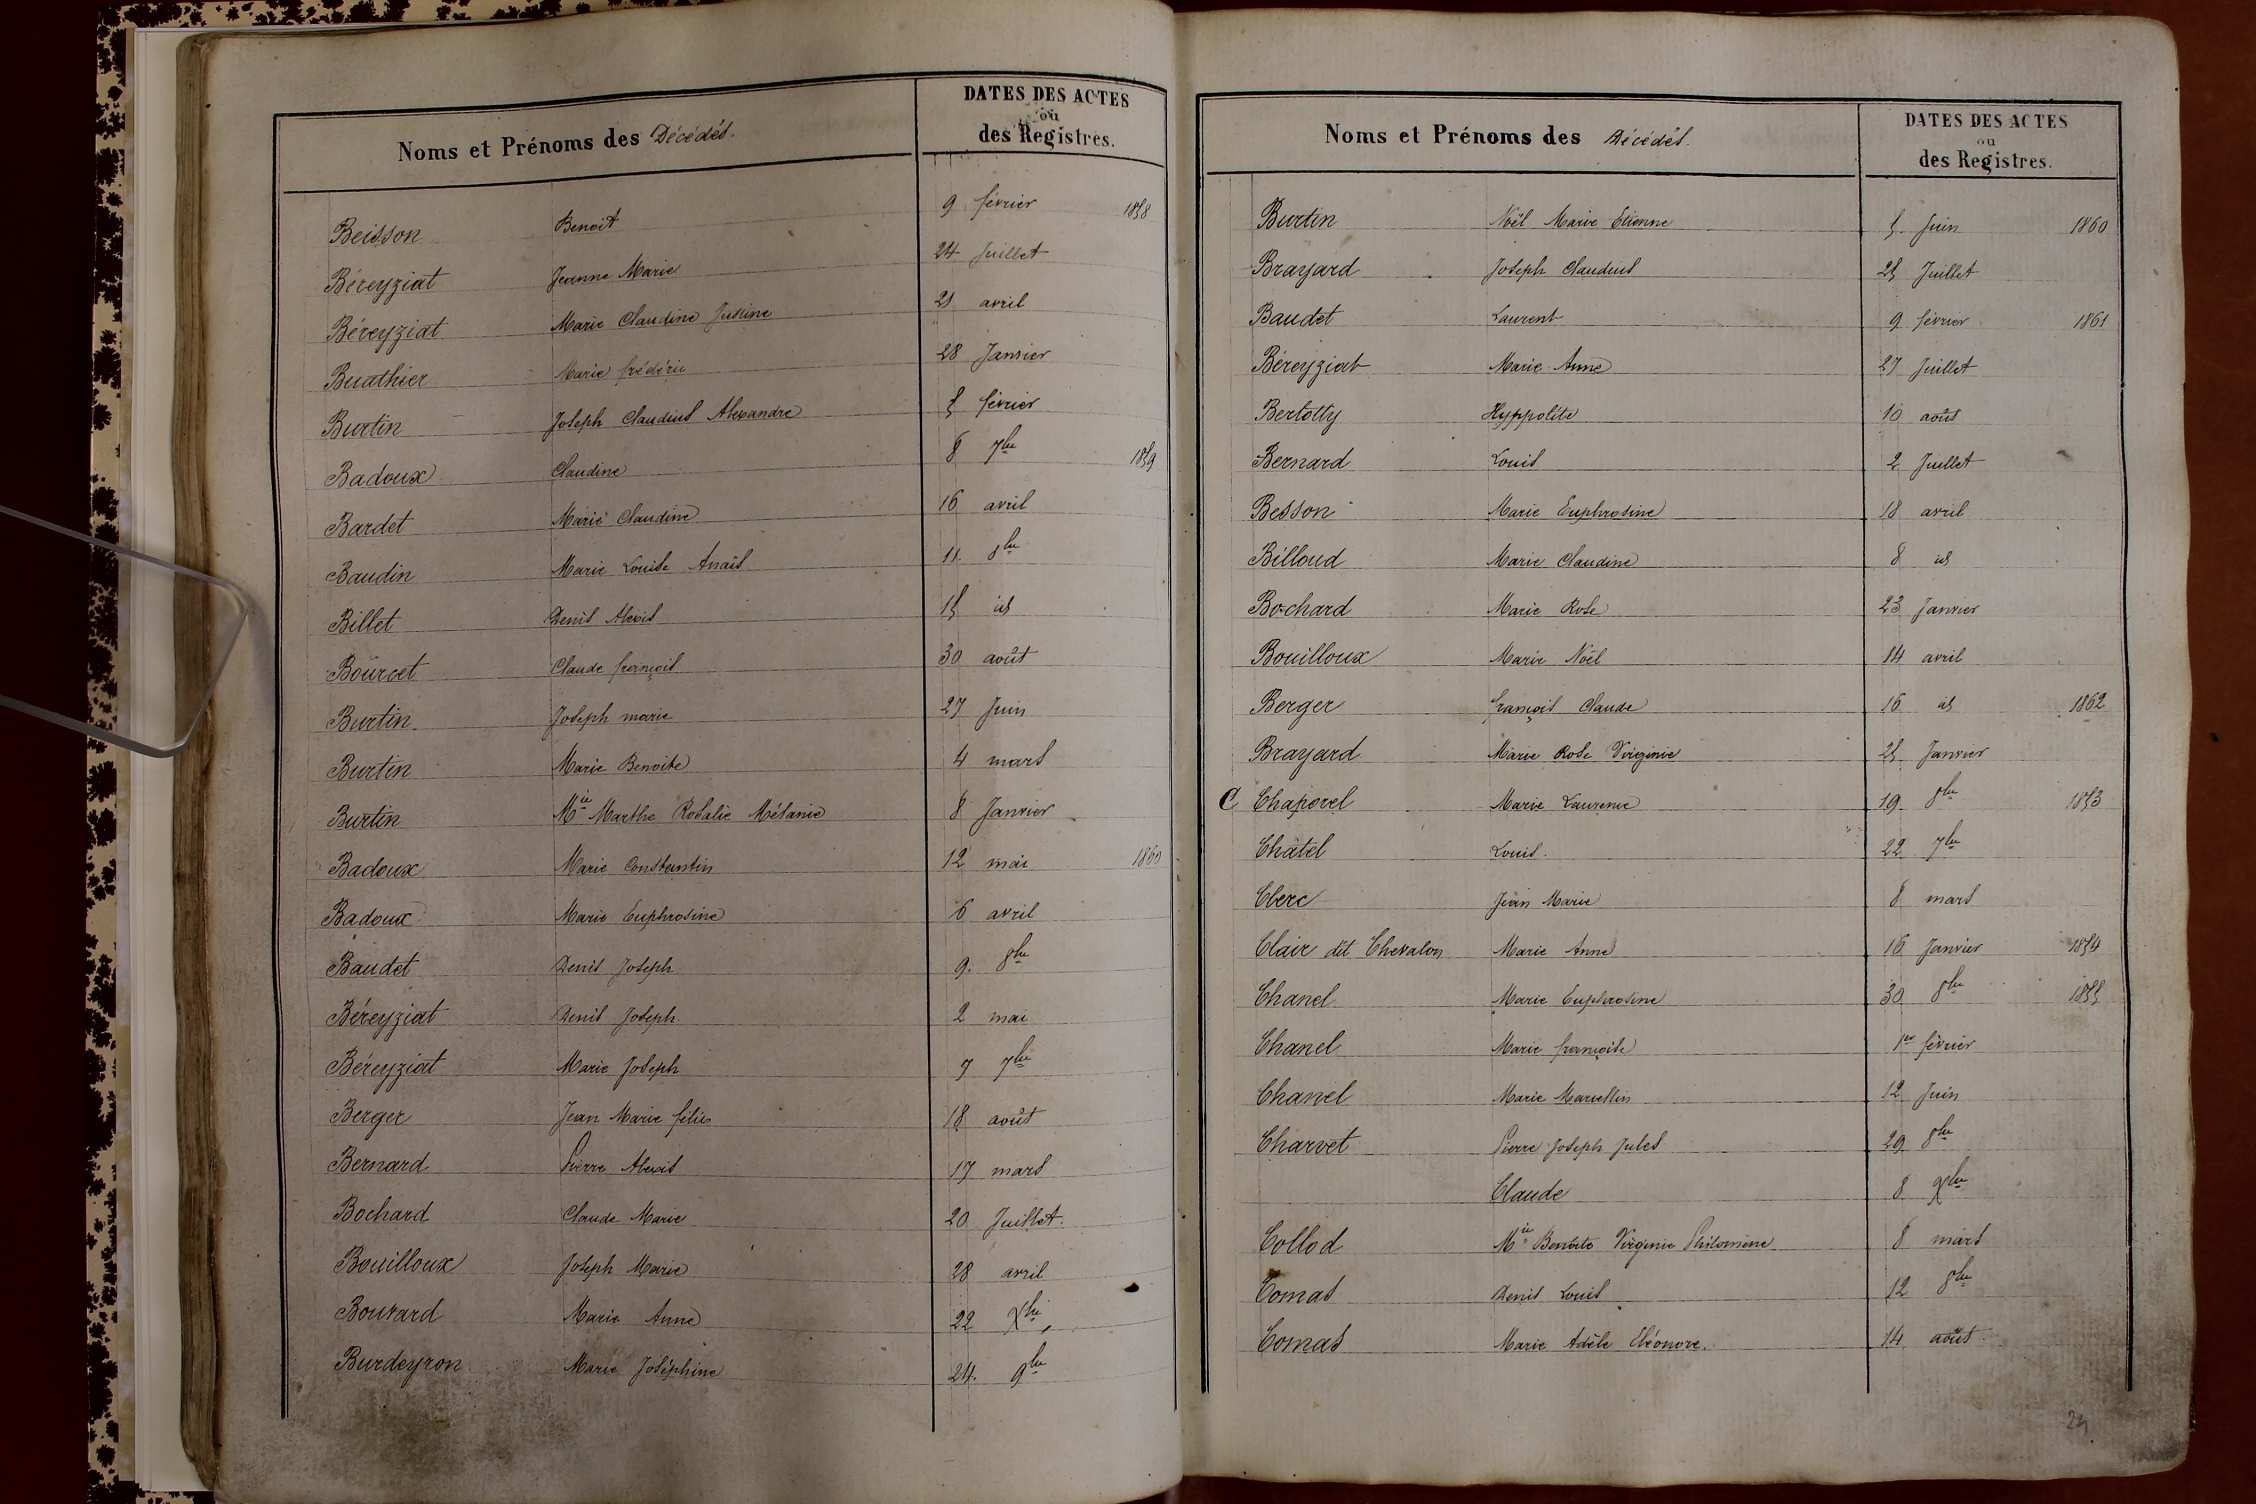 Noms et Prénoms des Décédés.
DATES DES ACTES
ou
des Registres.
Beisson Benoit 9 février 1858
Béreyziat Jeanne Marie 24 Juillet
Béreyziat Marie Claudine Justine 21 avril
Buathier Marie frédéric 28 Janvier
Burtin Joseph Claudius Alexandre 5 février
Badoux Claudine 6 7bre 1859
Bardet Marie Claudine 16 avril
Baudin Marie Louise Anaïs 11 8bre
Billet Denis Alexis 15 id
Bourcet Claude françois 30 août
Burtin Joseph marie 27 Juin
Burtin Marie Benoite 4 mars
Burtin Mie Marthe Rosalie Mélanie 8 Janvier
Badoux Marie Constantin 12 mai 1860
Badoux Marie Euphrosine 6 avril
Baudet Denis Joseph 9 8bre
Béreyziat Denis Joseph 2 mai
Béreyziat Marie Joseph 7 7bre
Berger Jean Marie félix 18 août
Bernard Pierre Alexis 17 mars
Bochard Claude Marie 20 Juillet
Bouilloux Joseph Marie 28 avril
Bouvard Marie Anne 22 Xbre
Burdeyron Marie Joséphine 24 9bre
Noms et Prénoms des Décédés.
DATES DES ACTES
ou
des Registres.
Burtin Noël Marie Etienne 5 Juin 1860
Brayard Joseph Claudius 25 Juillet
Baudet Laurent 9 février 1861
Béreyziat Marie Anne 27 Juillet
Bertotty Hyppolite 10 août
Bernard Louis 2 Juillet
Besson Marie Euphrosine 18 avril
Billoud Marie Claudine 8 id
Bochard Marie Rose 23 Janvier
Bouilloux Marie Noël 14 avril
Berger françois Claude 16 id 1862
Brayard Marie Rose Virginie 25 Janvier
C Chapovel Marie Laurence 19 8bre 1853
Châtel Louis 22 7bre
Clerc Jean Marie 8 mars
Clair dit Chevalon Marie Anne 16 Janvier 1854
Chanel Marie Euphrosine 30 8bre 1855
Chanel Marie françoise 1er février
Chanel Marie Marcellin 12 Juin
Charvet Pierre Joseph Jules 29 8bre
Claude 8 Xbre
Collod Mie Benoite Virginie Philomène 8 mars
Comas Denis Louis 12 8bre
Comas Marie Adèle Eléonore. 14 août